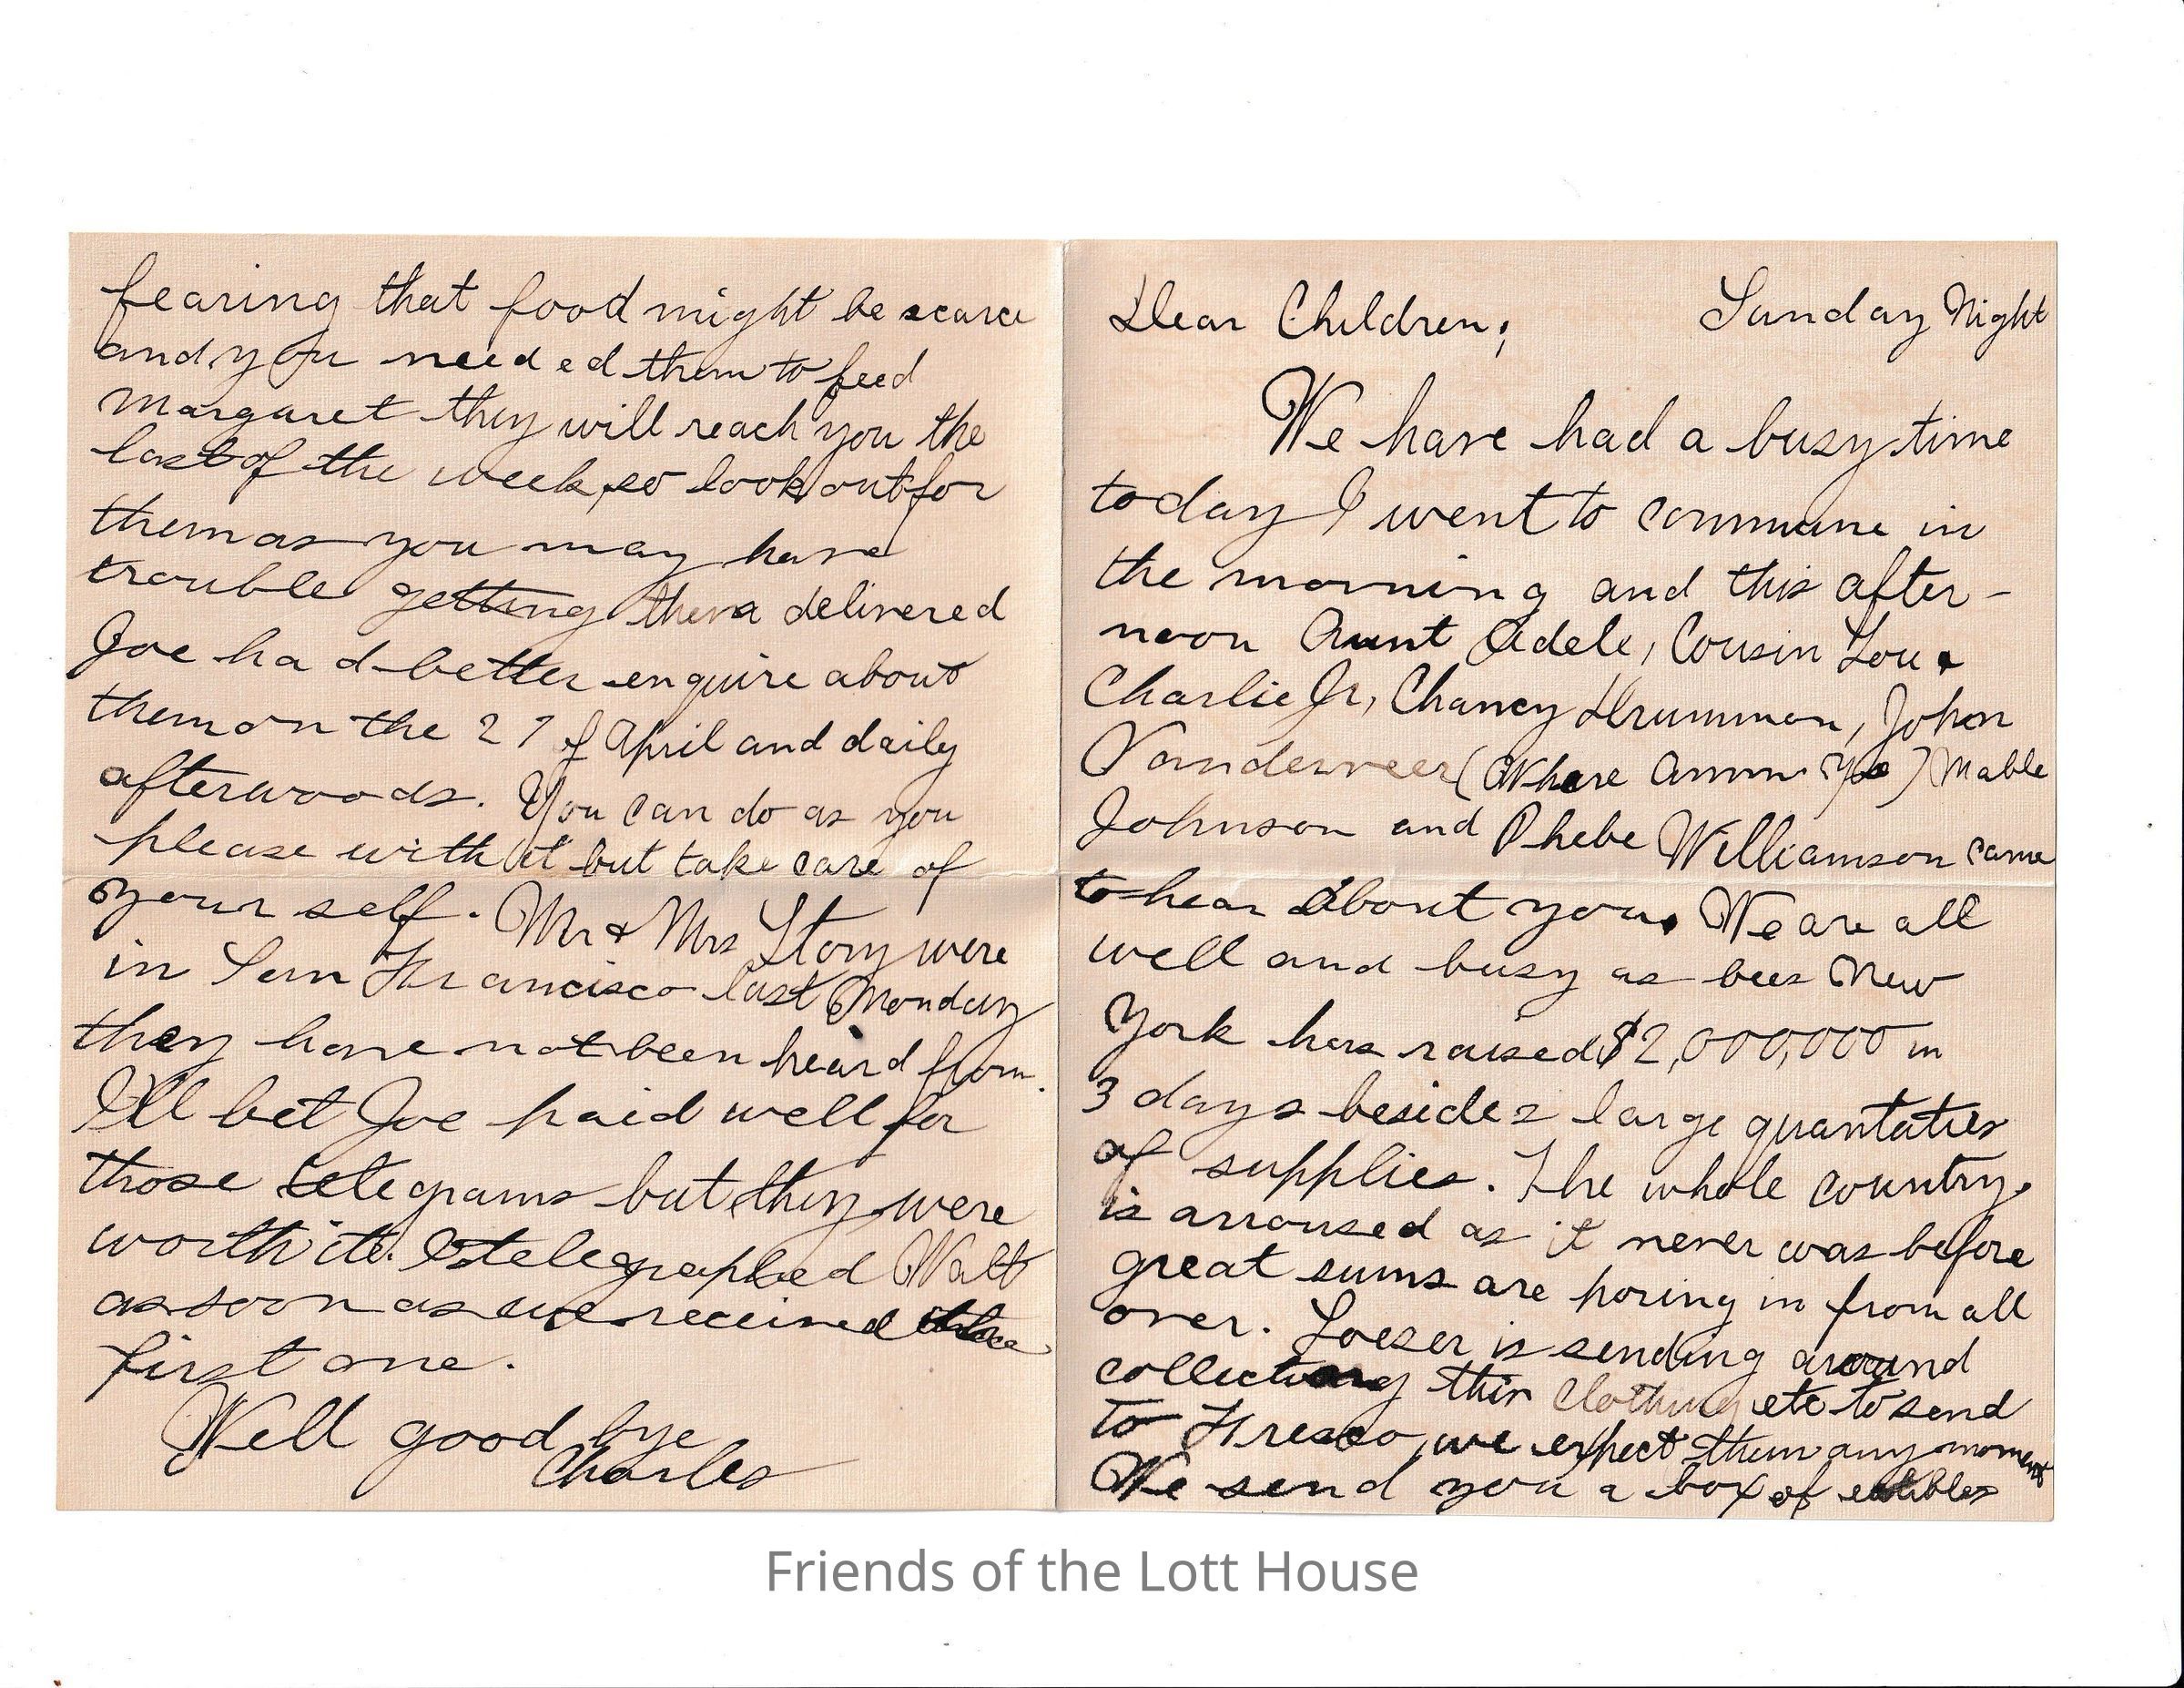 Dear Children; Sunday Night
We have had a busy time
today I went to commune in
the morning and this after-
noon Aunt Adele, Cousin Lou &
Charlie Jr, Chancy Drummon, John
Vanderveer (Where) Mable
Johnson and Phebe Williamson came
to hear about you. We are all
well and busy as bees New
York has raised $2,000,000 in
3 days besides large quantaties
of supplies. The whole country
is arroused as it never was before
great sums are poring in from all
over. Loeser is sending around
collecting thin clothing etc to send
to Fresco, we expect them any moment
We send you a box of eatibles
fearing that food might be scarce
and you needed them to feed
Margaret they will reach you the
last of the week, so look out for
them as you may have
trouble getting them delivered
Joe had better enquire about
them on the 27 of April and daily
afterwoods. You can do as you
please with it but take care of
your self. Mr & Mrs Story were
in San Francisco last Monday
they have not been heard from.
I'll bet Joe paid well for
those telegrams but they were
worth it. I telegraphed Walt
as soon as we received
first one.
Well good bye
Charles
Friends of the Lott House